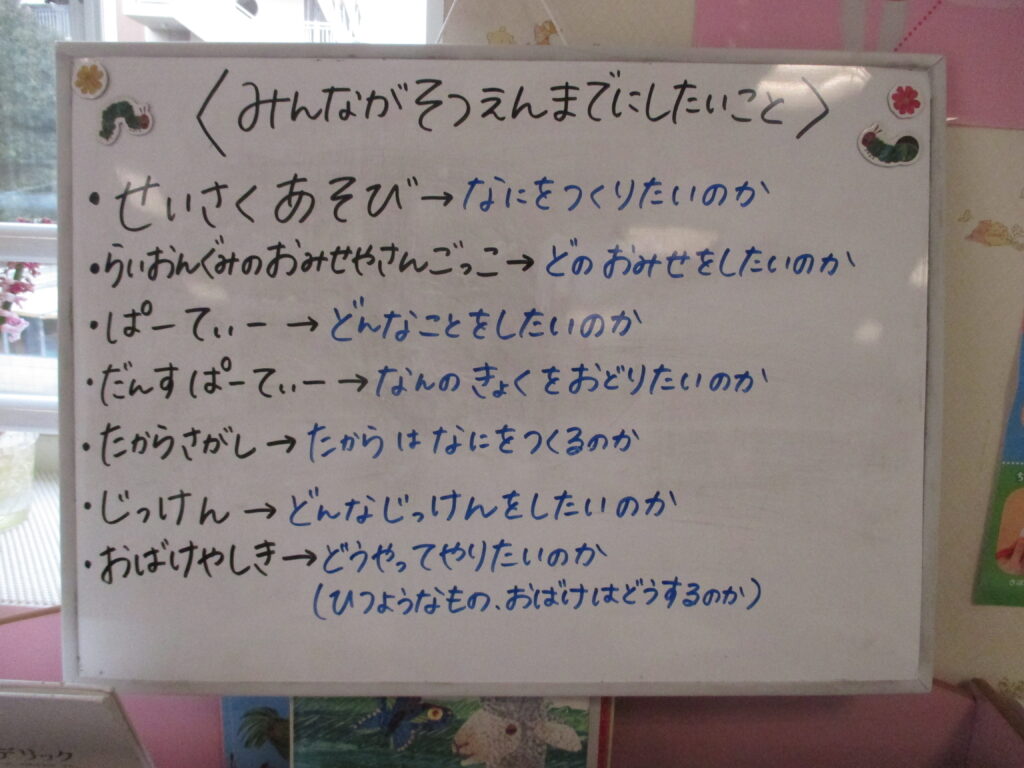 〈みんながそつえんまでにしたいこと〉
・せいさくあそび→なにをつくりたいのか
・らいおんぐみのおみせやさんごっこ→どのおみせをしたいのか
・ぱーてぃー→どんなことをしたいのか
・だんすぱーてぃー→なんのきょくをおどりたいのか
・たからさがし→たからはなにをつくるのか
・じっけん→どんなじっけんをしたいのか
・おばけやしき→どうやってやりたいのか
(ひつようなもの、おばけはどうするのか)
デリック